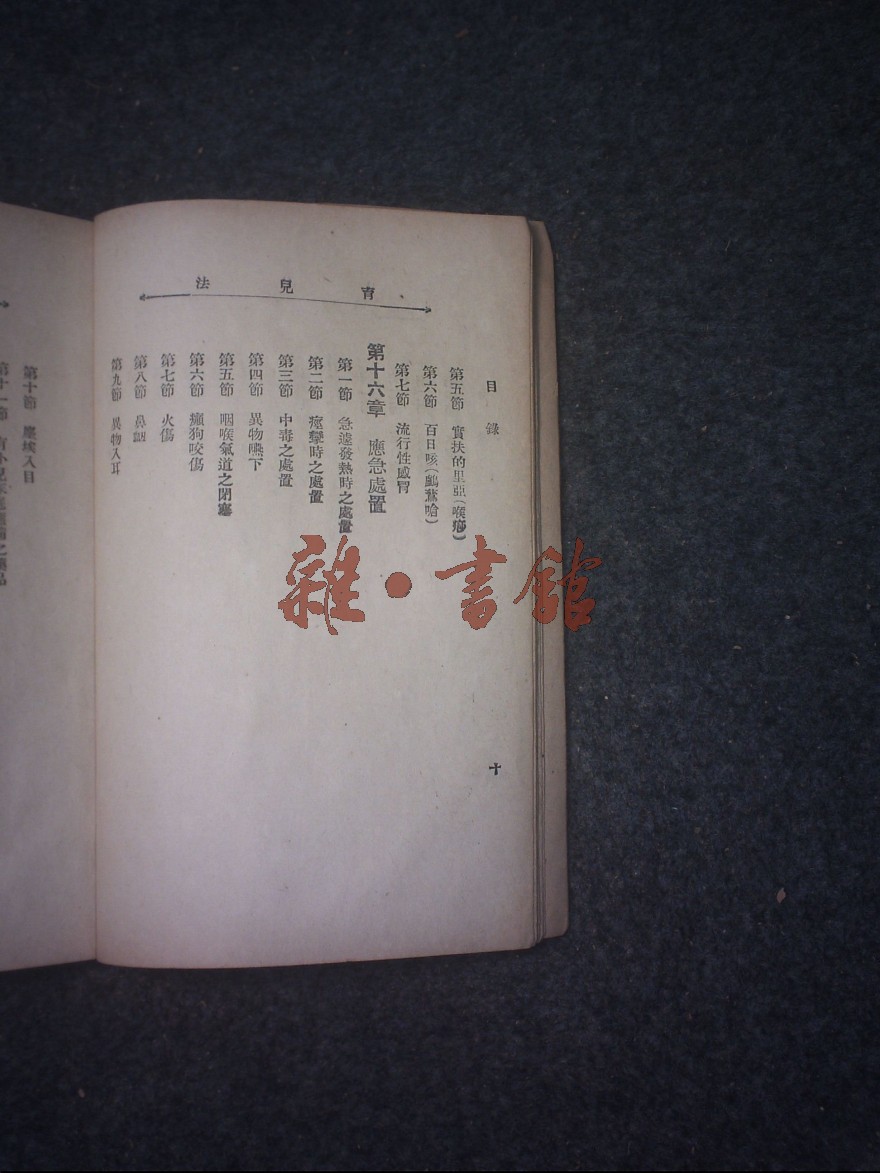 育兒法
目錄
第五節 實扶的里亞(喉痧)
第六節 百日咳(鷀鶿嗆)
第七節 流行性感冒
第十六章 應急處置
第一節 急遽發熱時之處置
第二節 痙攣時之處置
第三節 中毒之處置
第四節 異物嚥下
第五節 咽喉氣道之閉塞
第六節 癲狗咬傷
第七節 火傷
第八節 鼻衄
第九節 異物入耳
十
第十節 塵埃入目
第十一節
雜·書館